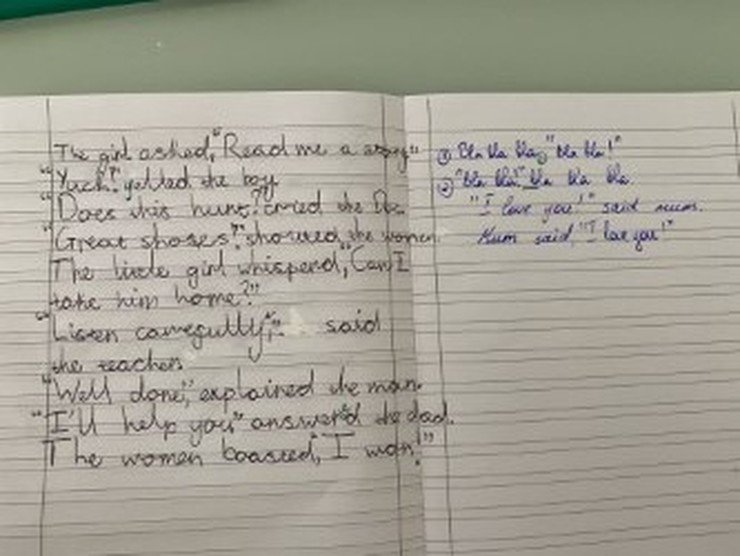 The girl asked, "Read me a story"
"Yuck!" yelled the boy
"Does this hurt?" the
"Great shoses!" shouted the women.
The little girl whisperd, "Can I
take him home?"
"Listen carregully," said
the teacher
"Well done," explained the man.
"I'll help you" answerd the dad.
The women boasted, "I won!"
① Bla bla bla, "bla bla!"
② "Bla bla!" bla bla bla.
"I love you!" said mum.
Mum said, "I love you!"